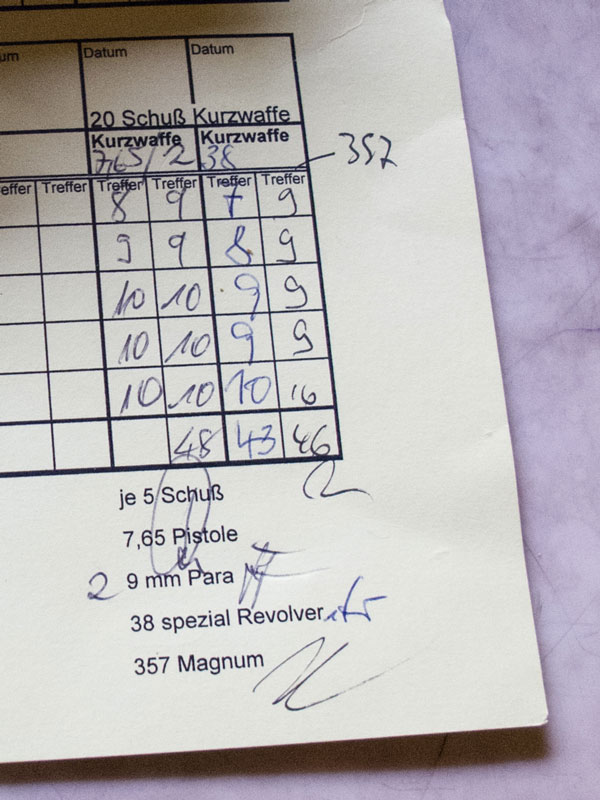 um Datum Datum
20 Schuß Kurzwaffe
Kurzwaffe Kurzwaffe
7,65/2 38 357
effer Treffer Treffer Treffer Treffer Treffer
8 9 7 9
9 9 8 9
10 10 9 9
10 10 9 9
10 10 10 10
48 43 46
je 5 Schuß
7,65 Pistole
2 9 mm Para
38 spezial Revolver
357 Magnum